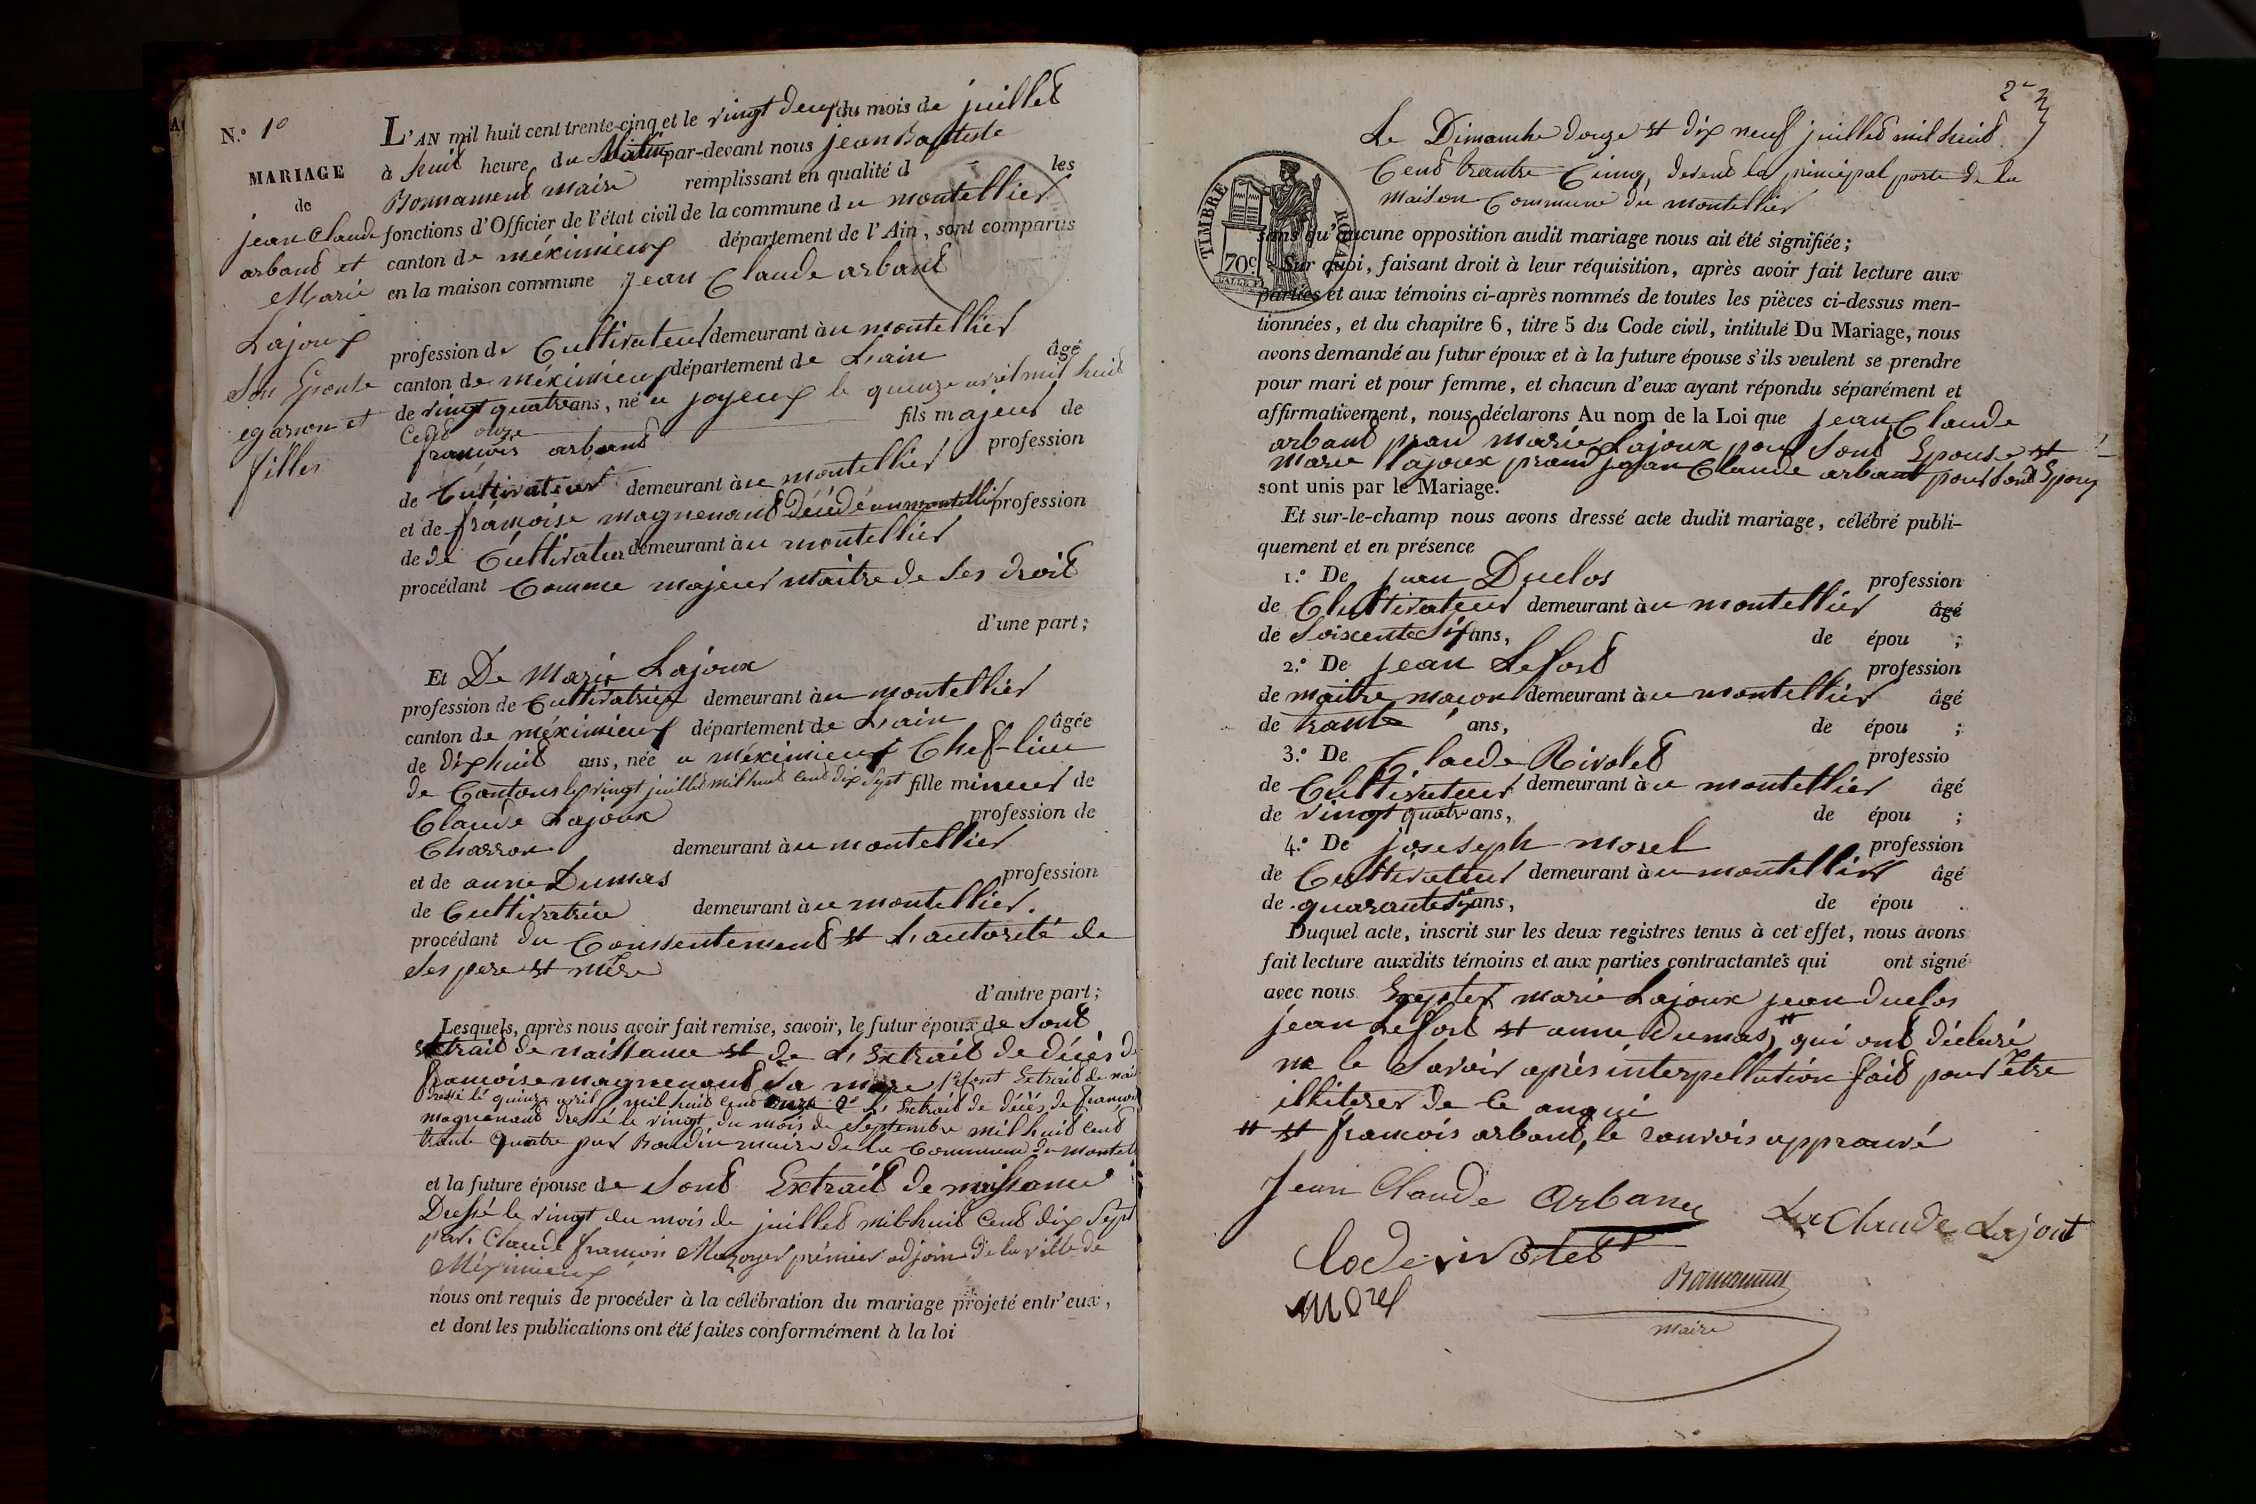 N.° 1°
MARIAGE
de
jean Claude
arband et
Marie
Lajoux
Son Epouse
egarson et
filles
L'AN mil huit cent trente-cinq et le vingt deux du mois de juillet
à huit heure du Matin par-devant nous jean Baptiste
Bonnament maire remplissant en qualité d les
fonctions d'Officier de l'état civil de la commune du montellier
canton de méximieux département de l'Ain, sont comparus
en la maison commune jean Claude arband
profession de Cultivateur demeurant au montellier
canton de méximieux département de Lain âgé
de vingt quatre ans, né a joyeux le quinze avril mil huit
Cent onze fils majeur de
francois arband profession
de Cultivateur demeurant au montellier
et de francoise magnenand décédé au montellier profession
de de Cultivateur demeurant au montellier
procédant Comme majeur maitre de ses droit
d'une part;
Et De Marie Lajoux
profession de Cultivatrice demeurant au montellier
canton de méximieux département de Lain âgée
de dix huit ans, née a méximieux Chef-lieu
de Cantons le vingt juillet mil huit cent dix sept fille mineur de
Claude Lajoux profession de
Charron demeurant au montellier
et de anne Dumas profession
de Cultivatrice demeurant au montellier.
procédant du Consentement et L'autorité de
ses pere et mére
d'autre part;
Lesquels, après nous avoir fait remise, savoir, le futur époux de Sont
extrait de naissance et de L'Extrait de décès de
francoise magnenand sa mere 1° sont Extrait de nai
dressé le quinze avril mil huit cent onze 2° L'Extrait de décés de francoi
magnenand dressé le vingt du mois de septembre mil huit cent
trante quatre par Baudin maire de la Commune du montel
et la future épouse de Sont Extrait de naissance
Dressé le vingt du mois de juillet mil huit Cent dix Sept
par Claude francois Mazoyer prémier adjoin de la ville de
Méximieux
nous ont requis de procéder à la célébration du mariage projeté entr'eux,
et dont les publications ont été faites conformément à la loi
2e
Le Dimanche douze et dix neuf juillet mil huit
Cent trantre Cinq, devent la principal porte de la
maison Commune du montellier
TIMBRE ROYAL
70c
sans qu'aucune opposition audit mariage nous ait été signifiée;
Sur quoi, faisant droit à leur réquisition, après avoir fait lecture aux
parties et aux témoins ci-après nommés de toutes les pièces ci-dessus men-
tionnées, et du chapitre 6, titre 5 du Code civil, intitulé Du Mariage, nous
avons demandé au futur époux et à la future épouse s'ils veulent se prendre
pour mari et pour femme, et chacun d'eux ayant répondu séparément et
affirmativement, nous déclarons Au nom de la Loi que jean Claude
arband prand marie Lajoux pour Sont Epouse et
marie lajoux prand jean Claude arband pour Sont Epoux
sont unis par le Mariage.
Et sur-le-champ nous avons dressé acte dudit mariage, célébré publi-
quement et en présence
1.° De juan Duclos profession
de Clultivateur demeurant au montellier âgé
de Soiscente Six ans, de épou ;
2.° De jean Lefort profession
de maitre macon demeurant au montellier âgé
de trante ans, de épou ;
3.° De Claude Rivolet professio
de Cultivateur demeurant au montellier âgé
de vingt quatre ans, de épou ;
4.° De joseseph morel profession
de Cultivateur demeurant au montellier âgé
de quarante Six ans, de épou .
Duquel acte, inscrit sur les deux registres tenus à cet effet, nous avons
fait lecture auxdits témoins et aux parties contractantes qui ont signé
avec nous Exepter marie Lajoux jean duclos
jean Lefort et anne Dumas, # qui ont déclaré
ne le Savoir aprés interpellation fait pour être
illiterer de ce anqui
# et francois arband, le ranvois approuvé
Jean Claude Arband
La Claude Lajout
Clode rivolet
Bonnament
morel
maire